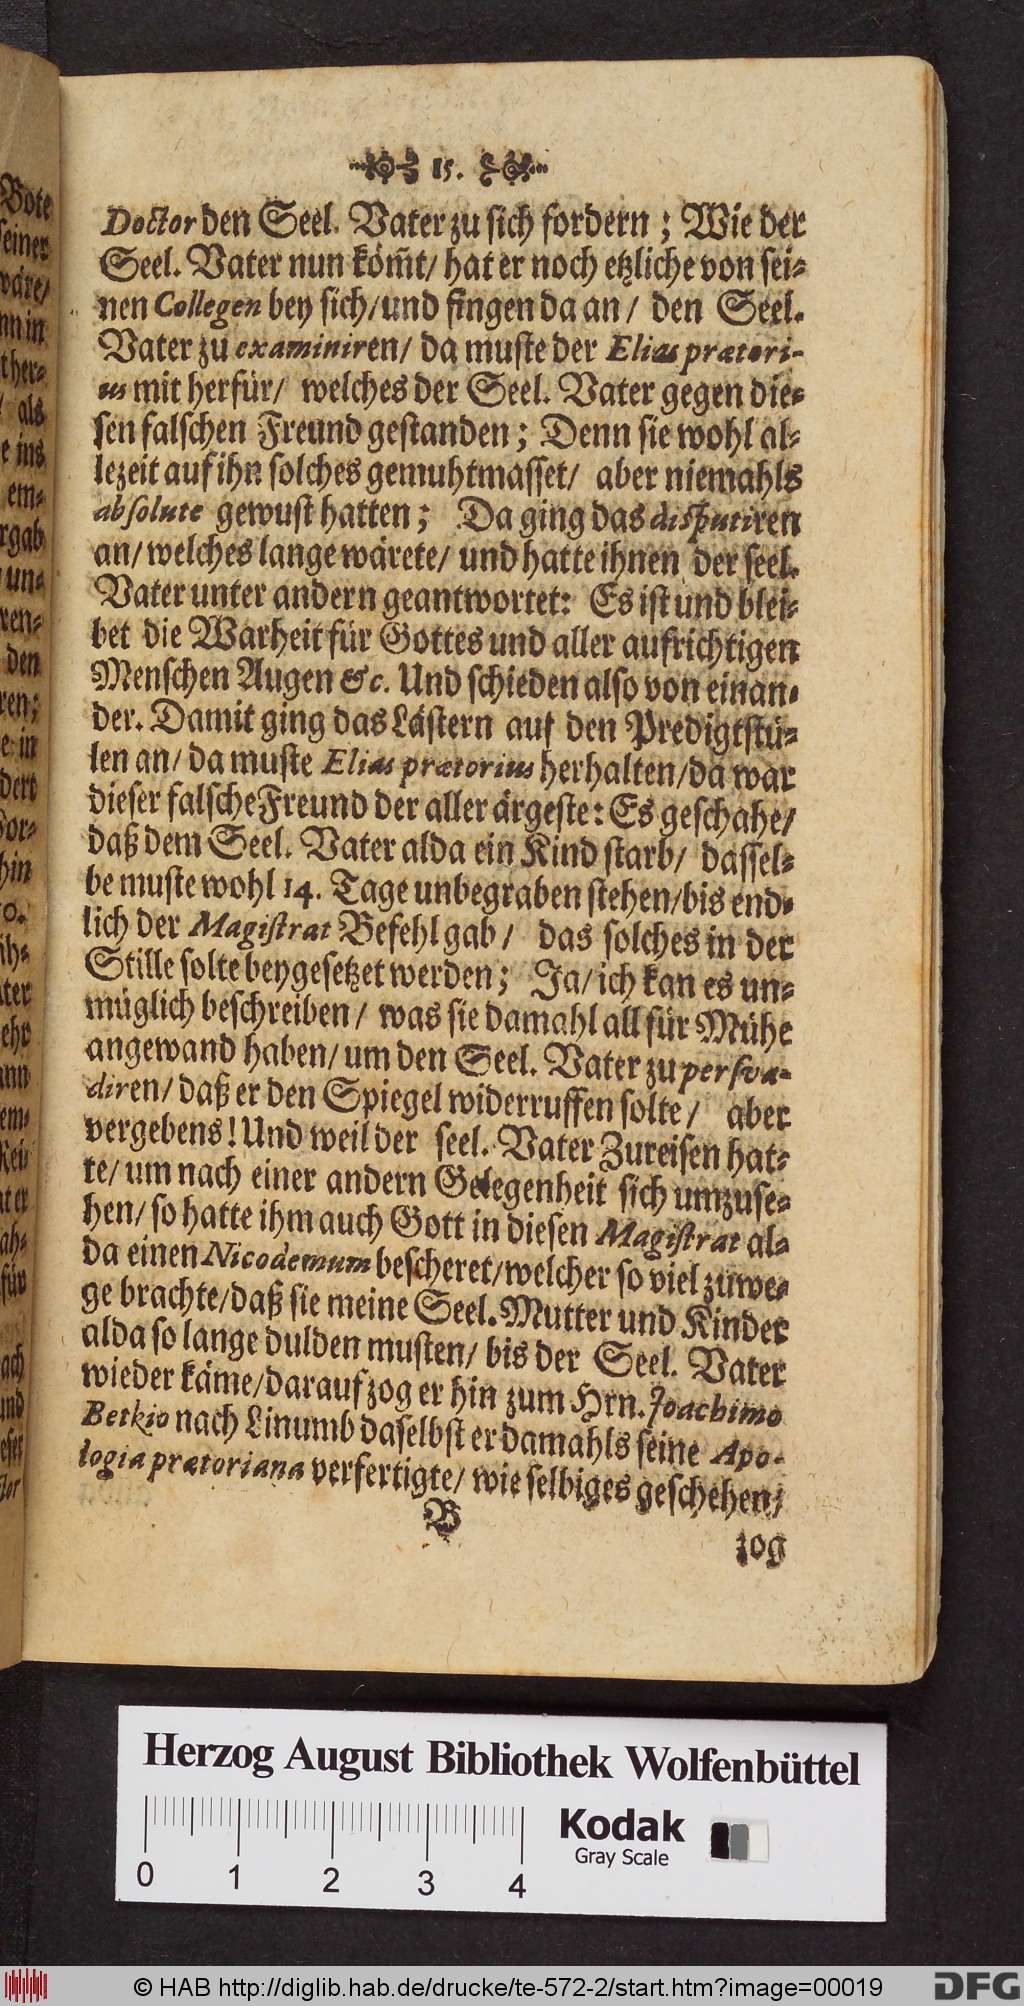 15.
Doctor den Seel. Vater zu sich fordern ; Wie der
Seel. Vater nun köm̃t/ hat er noch etzliche von sei-
nen Collegen bey sich/und fingen da an/ den Seel.
Vater zu examiniren/ da muste der Elias prætori-
us mit herfür/ welches der Seel. Vater gegen die-
sen falschen Freund gestanden; Denn sie wohl al-
lezeit auf ihn solches gemuhtmasset/ aber niemahls
absolute gewust hatten; Da ging das disputiren
an/ welches lange wärete/ und hatte ihnen der seel.
Vater unter andern geantwortet: Es ist und blei-
bet die Warheit für Gottes und aller aufrichtigen
Menschen Augen &c. Und schieden also von einan-
der. Damit ging das Lästern auf den Predigtstü-
len an/ da muste Elias prætorius herhalten/da war
dieser falsche Freund der aller ärgeste: Es geschahe/
daß dem Seel. Vater alda ein Kind starb/ dassel-
be muste wohl 14. Tage unbegraben stehen/bis end-
lich der Magistrat Befehl gab/ das solches in der
Stille solte beygesetzet werden; Ja/ ich kan es un-
müglich beschreiben/ was sie damahl all für Mühe
angewand haben/ um den Seel. Vater zu persva-
diren/ daß er den Spiegel widerruffen solte/ aber
vergebens! Und weil der seel. Vater Zureisen hat-
te/ um nach einer andern Gelegenheit sich umzuse-
hen/ so hatte ihm auch Gott in diesen Magistrat al-
da einen Nicodemum bescheret/welcher so viel zuwe-
ge brachte/daß sie meine Seel. Mutter und Kinder
alda so lange dulden musten/ bis der Seel. Vater
wieder käme/darauf zog er hin zum Hrn. Joachimo
Betkio nach Linumb daselbst er damahls seine Apo-
logia prætoriana verfertigte/ wie selbiges geschehen/
B
zog
Herzog August Bibliothek Wolfenbüttel
0 1 2 3 4
Kodak
Gray Scale
© HAB http://diglib.hab.de/drucke/te-572-2/start.htm?image=00019
DFG